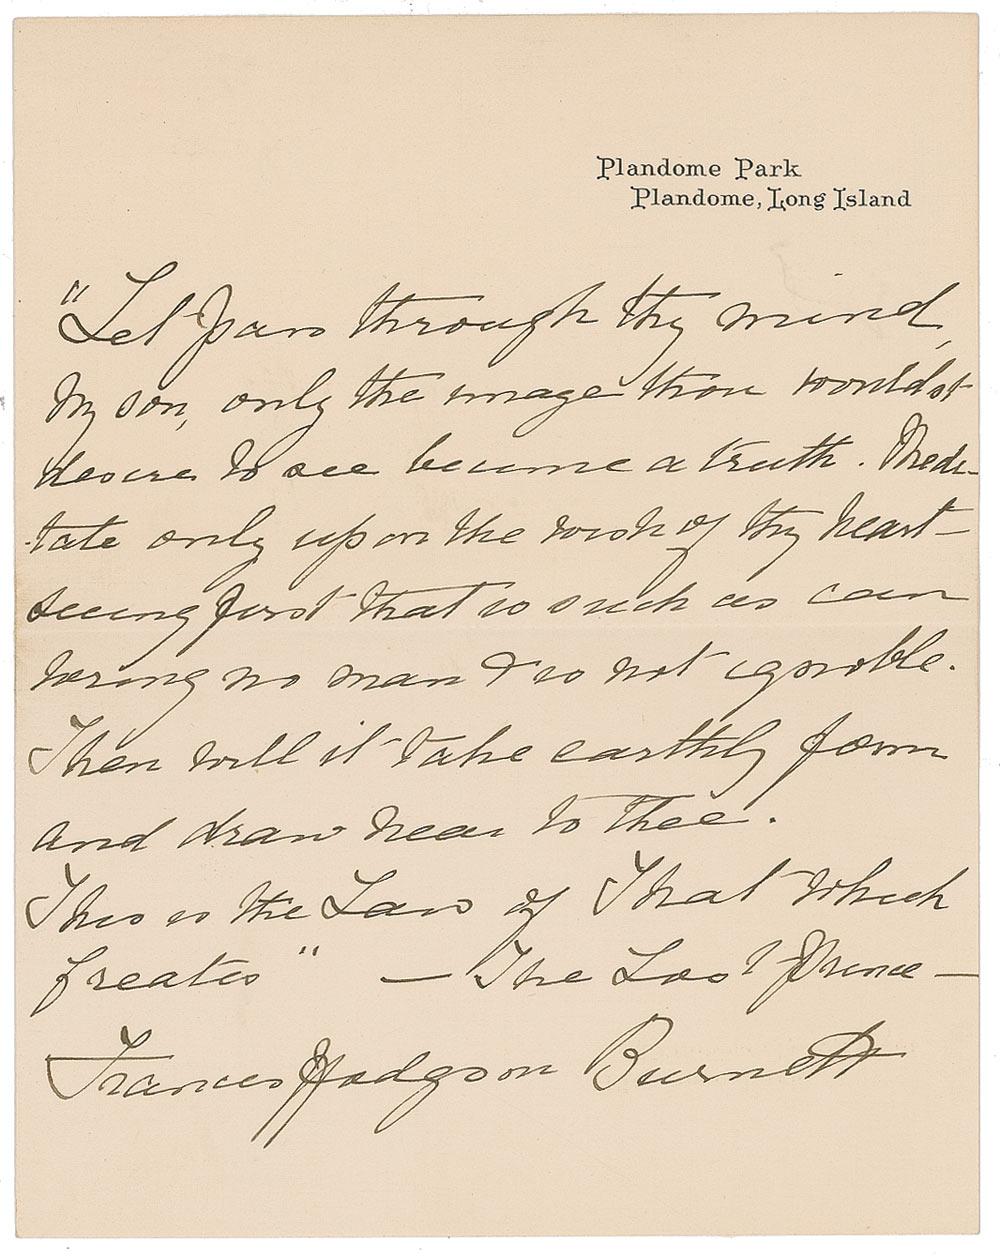 Plandome Park
Plandome, Long Island
"Let pass through thy mind,
my son, only the image thou would'st
desire to see become a truth. Medi-
tate only upon the wish of thy heart –
seeing first that is such as can
wrong no man & is not ignoble.
Then will it take earthly form
and draw near to thee.
This is the Law of That which
Creates" — The Lost Prince —
Frances Hodgson Burnett